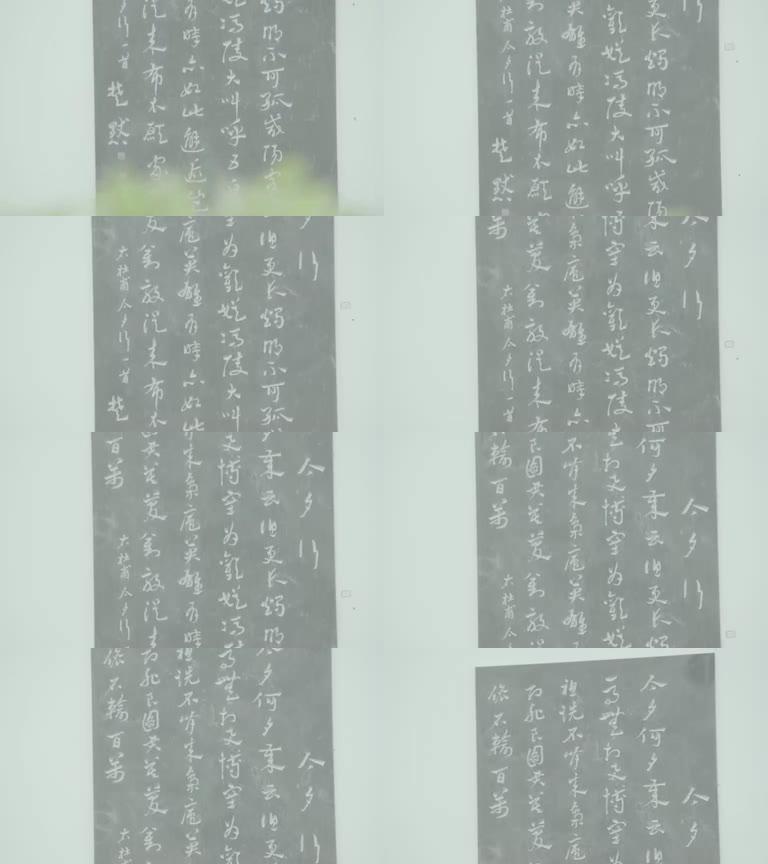 今夕行
今夕何夕歲云徂更長燭明不可孤咸陽客
一事無相与博塞為歡娛馮陵大叫呼五白
袒跣不肯成梟盧英雄有時亦如此邂逅豈
即非良圖君莫笑劉毅從來布衣願家
儋石輸百萬
右杜甫今夕行一首
楚默